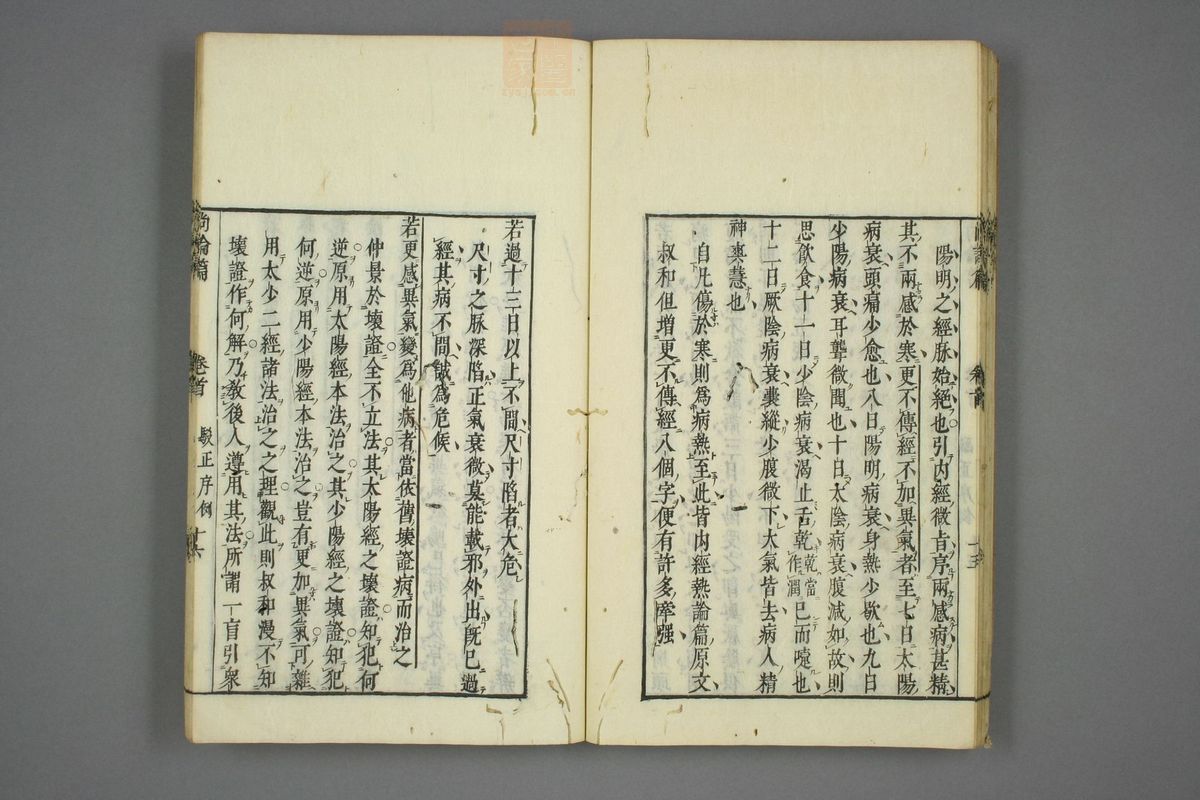 陽明之經脉始絕也引內經微旨序兩感病甚精
其不兩感於寒更不傳經不加異氣者至七日太陽
病衰頭痛少愈也八日陽明病衰身熱少歇也九日
少陽病衰耳聾微聞也十日太陰病衰腹減如故則
思飲食十一日少陰病衰渴止舌乾乾當作潤已而嚏也
十二日厥陰病衰囊縱少腹微下大氣皆去病人精
神爽慧也
自凡傷於寒則爲病熱至此皆內經熱論篇原文
叔和但增更不傳經八個字便有許多牽强
若過十三日以上不間尺寸陷者大危
尺寸之脉深陷正氣衰微莫能載邪外出旣已過
經其病不間誠爲危候
若更感異氣變爲他病者當依舊壞證病而治之
仲景於壞證全不立法其太陽經之壞證知犯何
逆原用太陽經本法治之其少陽經之壞證知犯
何逆原用少陽經本法治之豈有更加異氣可雜
用太少二經諸法治之之理觀此則叔和漫不知
壞證作何解乃敎後人遵用其法所謂一盲引衆
尚論篇 卷首 駁正序例 十六